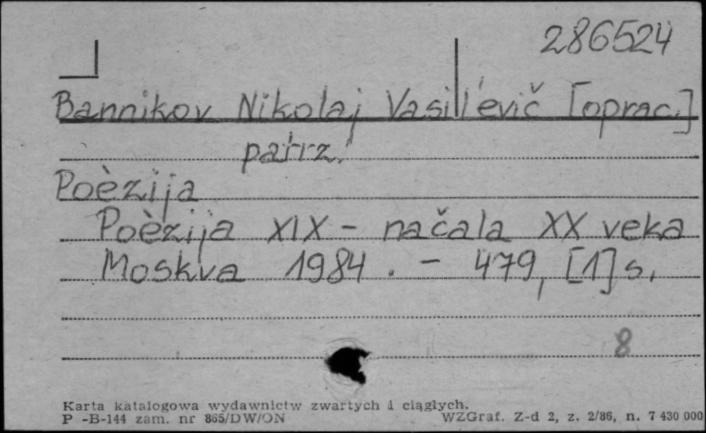 286524
Bannikov Nikolaj Vasil'evič [oprac.]
patrz:
Poèzija
Poèzija XIX - načala XX veka
Moskva 1984. - 479, [1] s.
8
Karta katalogowa wydawnictw zwartych i ciągłych.
P-B-144 zam. nr 865/DW/ON WZGraf. Z-d 2, z. 2/86, n. 7 430 000